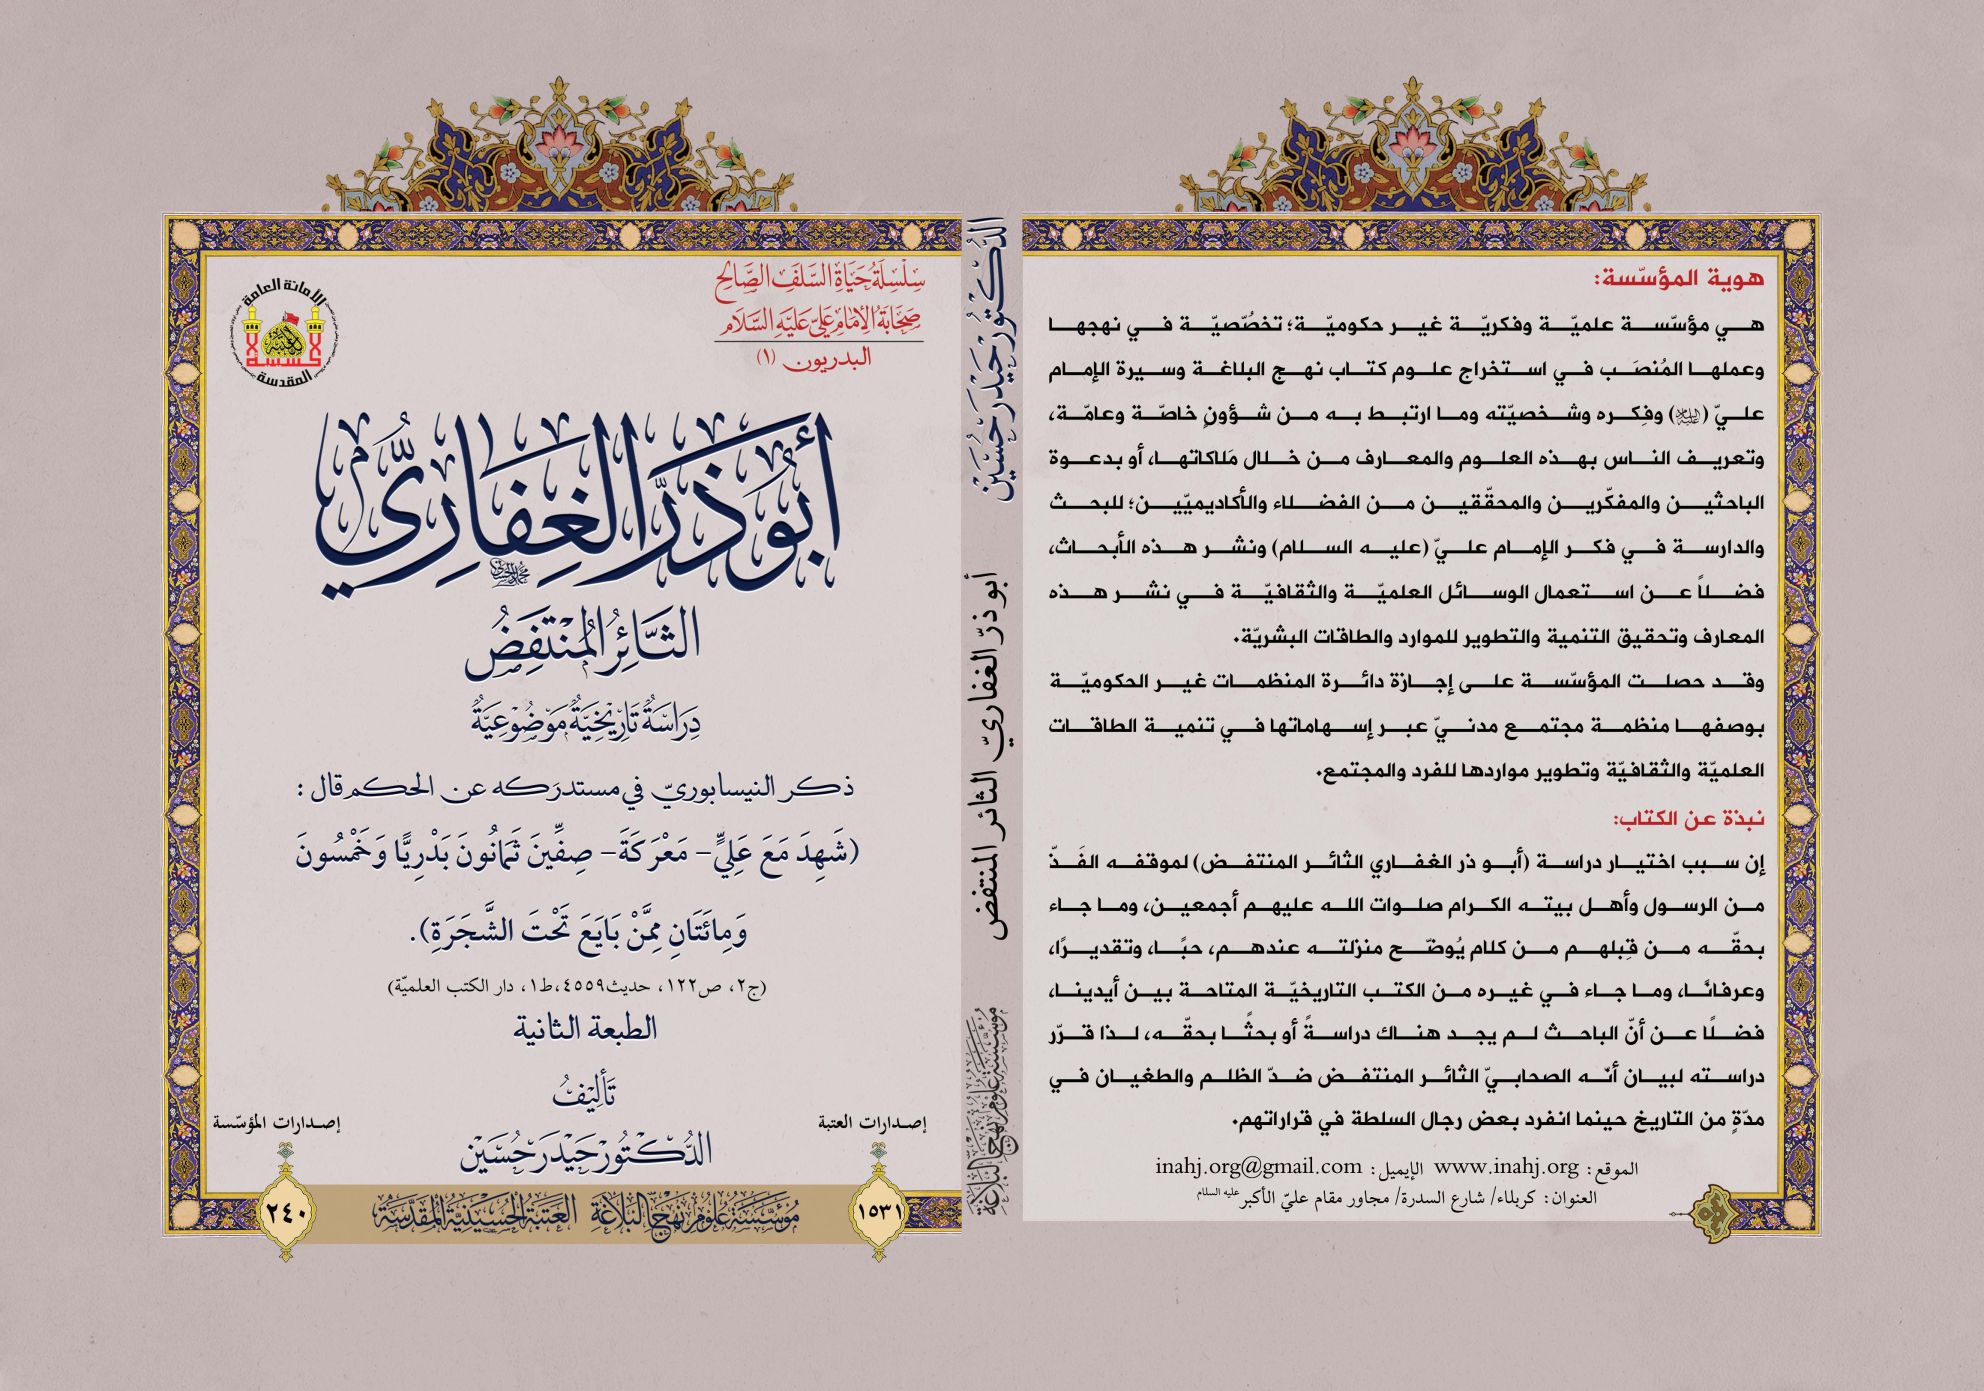 سِلْسِلَةُ حَيَاةِ السَّلَفِ الصَّالِحِ
صَحَابَةُ الإِمَامِ عَلِيٍّ عَلَيْهِ السَّلَام
البدريون (١)
الأمانة العامة
المقدسة
أَبُو ذَرّ الغِفَارِيُّ
الثَّائِرُ المُنْتَفِضُ
دِرَاسَةٌ تَارِيْخِيَّةٌ مَوْضُوْعِيَّةٌ
ذكر النيسابوريّ في مستدرَكه عن الحكم قال :
(شَهِدَ مَعَ عَلِيٍّ - مَعْرَكَةَ - صِفِّينَ ثَمَانُونَ بَدْرِيًّا وَخَمْسُونَ
وَمِائَتَانِ مِمَّنْ بَايَعَ تَحْتَ الشَّجَرَةِ).
(ج٢، ص١٢٢، حديث٤٥٥٩،ط١، دار الكتب العلميّة)
الطبعة الثانية
تَأْلِيْفُ
الدُّكْتُوْر حَيْدَر حُسَيْن
إصدارات العتبة
١٥٣١
إصدارات المؤسّسة
٢٤٠
مُؤَسَّسَةُ عُلُوْمِ نَهْجِ البَلَاغَةِ العَتَبَةُ الحُسَيْنِيَّةُ المُقَدَّسَةُ
الدُّكْتُوْر حَيْدَر حُسَيْن
أبو ذرّ الغفاريّ الثائر المنتفض
مُؤَسَّسَةُ عُلُوْمِ نَهْجِ البَلَاغَةِ
هوية المؤسّسة:
هي مؤسّسة علميّة وفكريّة غير حكوميّة؛ تخصّصيّة في نهجها
وعملها المُنصَب في استخراج علوم كتاب نهج البلاغة وسيرة الإمام
عليّ (عليه السلام) وفِكره وشخصيّته وما ارتبط به من شؤونٍ خاصّة وعامّة،
وتعريف الناس بهذه العلوم والمعارف من خلال مَلاكاتها، أو بدعوة
الباحثين والمفكّرين والمحقّقين من الفضلاء والأكاديميّين؛ للبحث
والدارسة في فكر الإمام عليّ (عليه السلام) ونشر هذه الأبحاث،
فضلاً عن استعمال الوسائل العلميّة والثقافيّة في نشر هذه
المعارف وتحقيق التنمية والتطوير للموارد والطاقات البشريّة.
وقد حصلت المؤسّسة على إجازة دائرة المنظمات غير الحكوميّة
بوصفها منظمة مجتمع مدنيّ عبر إسهاماتها في تنمية الطاقات
العلميّة والثقافيّة وتطوير مواردها للفرد والمجتمع.
نبذة عن الكتاب:
إن سبب اختيار دراسة (أبو ذر الغفاري الثائر المنتفض) لموقفه الفَذّ
من الرسول وأهل بيته الكرام صلوات الله عليهم أجمعين، وما جاء
بحقّه من قِبلهم من كلام يُوضّح منزلته عندهم، حبًا، وتقديرًا،
وعرفانًا، وما جاء في غيره من الكتب التاريخيّة المتاحة بين أيدينا،
فضلًا عن أنّ الباحث لم يجد هناك دراسةً أو بحثًا بحقّه، لذا قرّر
دراسته لبيان أنّه الصحابيّ الثائر المنتفض ضدّ الظلم والطغيان في
مدّةٍ من التاريخ حينما انفرد بعض رجال السلطة في قراراتهم.
الموقع: www.inahj.org الإيميل: inahj.org@gmail.com
العنوان: كربلاء/ شارع السدرة/ مجاور مقام عليّ الأكبر عليه السلام